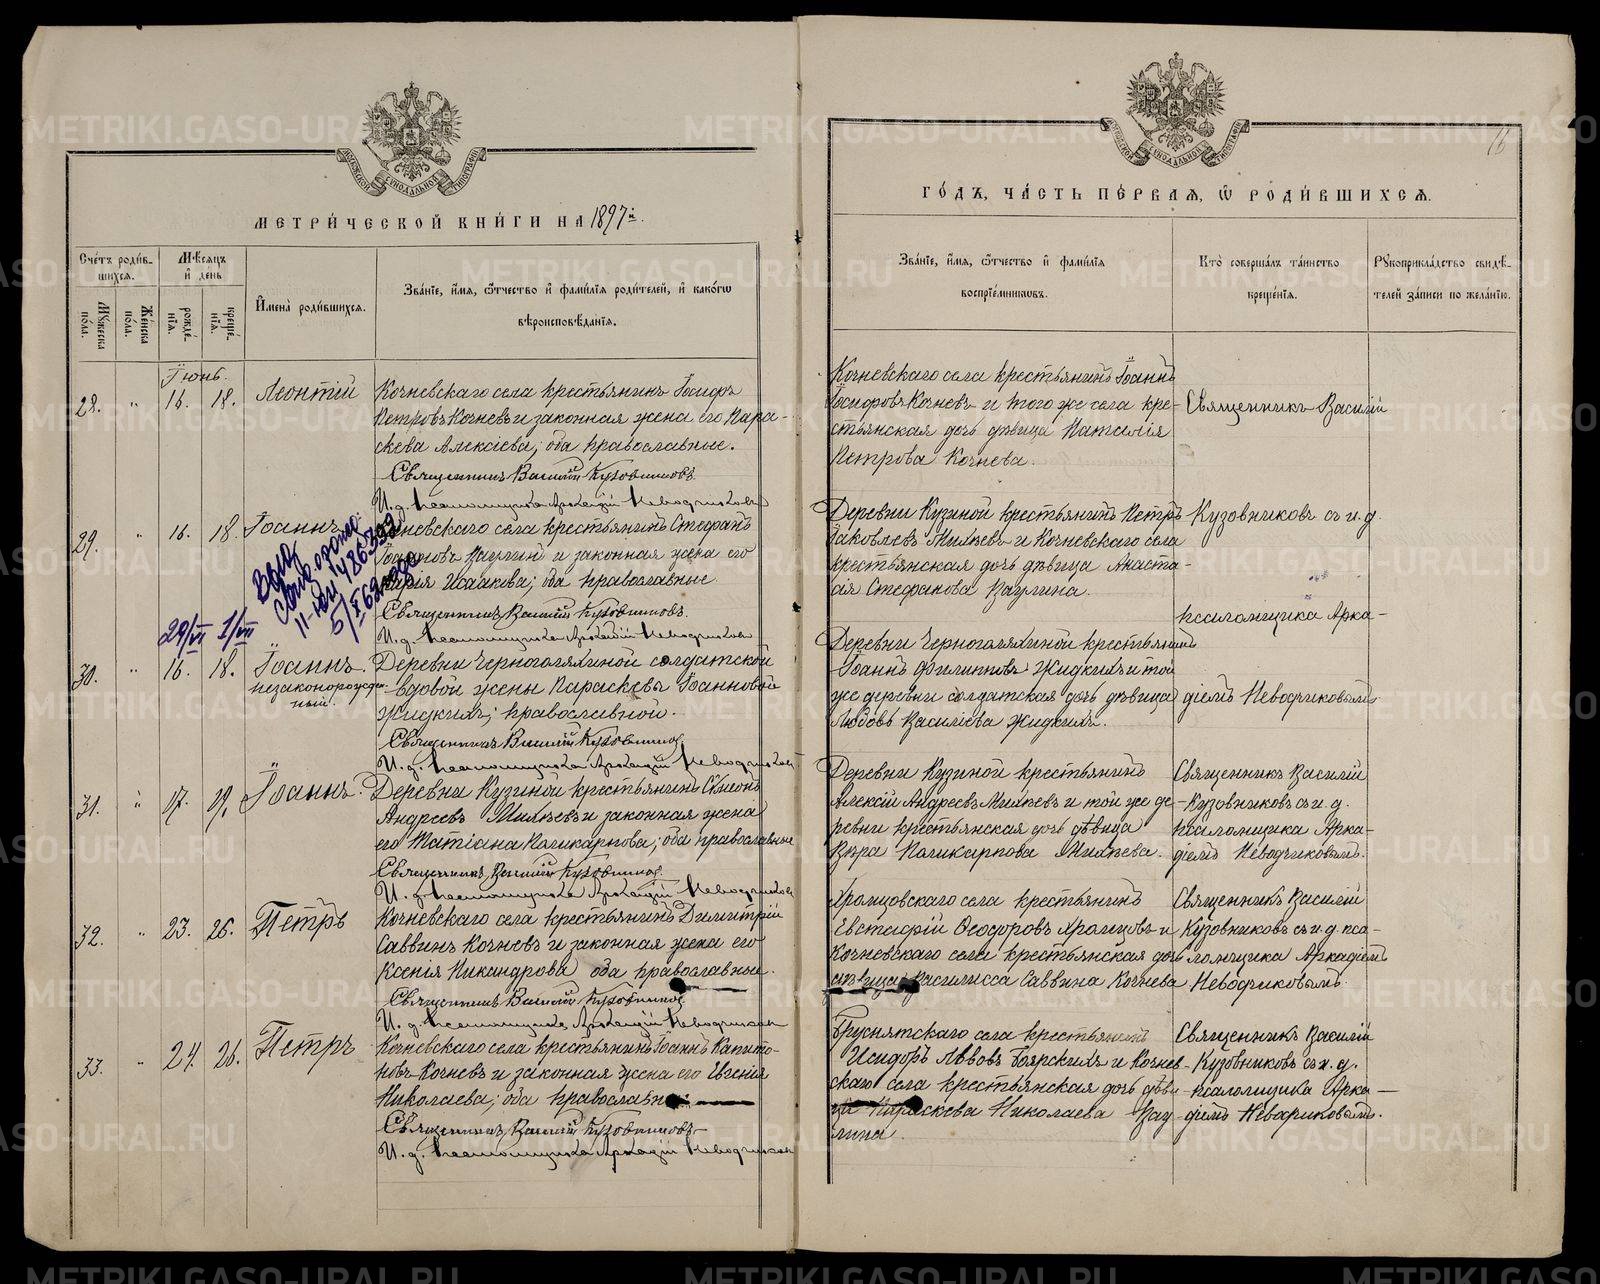 МОСКОВСКОЙ СѴНОДАЛЬНОЙ ТИПОГРАФІИ
МЕТРИ́ЧЕСКОЙ КНИ́ГИ НА 1897й.
Сче́тъ роди́в-
шихся.
Мѣ́сяцъ
и҆ день
Мꙋ́жеска
по́ла.
Же́нска
по́ла.
рожде́-
нїѧ.
креще́-
нїѧ.
И҆мена̀ роди́вшихся.
Зва́нїе, и҆́мѧ, ѻ҆́тчество и҆ фами́лїѧ роди́телей, и҆ како́гѡ
вѣроисповѣ́данїѧ.
Іюнь.
28. " 16. 18. Леонтій
Кочневскаго села крестьянинъ Іосифъ
Петровъ Кочневъ и законная жена его Пара-
скева Алексіева; оба православные.
Священникъ Василій Кузовниковъ
И. д. псаломщика Аркадій Неводчиковъ
29. " 16. 18. Іоаннъ
Кочневскаго села крестьянинъ Стефанъ
Ваулинъ и законная жена его
Марія Исаакова; оба православные
Священникъ Василій Кузовниковъ.
И. д. псаломщика Аркадій Неводчиковъ
29/VII 1/VIII
30. " 16. 18. Іоаннъ.
незаконорожден-
ный.
Деревни Черноголяхиной солдатской
вдовой жены Параскевы Іоанновой
Жидкихъ; православной.
Священникъ Василій Кузовниковъ
И. д. псаломщика Аркадій Неводчиковъ
31. " 17. 19. Іоаннъ.
Деревни Кузиной крестьянинъ Сѵмеонъ
Андреевъ Милѣевъ и законная жена
его Татіана Поликарпова; оба православные
Священникъ Василій Кузовниковъ
И. д. псаломщика Аркадій Неводчиковъ
32. " 23. 26. Петръ
Кочневскаго села крестьянинъ Димитрій
Саввинъ Кочневъ и законная жена его
Ксенія Никандрова оба православные.
Священникъ Василій Кузовниковъ
И. д. псаломщика Аркадій Неводчиковъ
33. " 24. 26. Петръ
Кочневскаго села крестьянинъ Іоаннъ Капито-
новъ Кочневъ и законная жена его Евгенія
Николаева; оба православн
Священникъ Василій Кузовниковъ
И. д. псаломщика Аркадій Неводчиковъ
16
МОСКОВСКОЙ СѴНОДАЛЬНОЙ ТИПОГРАФІИ
ГО́ДЪ, ЧА́СТЬ ПЕ́РВАЯ, Ѽ РОДИ́ВШИХСЯ.
Зва́нїе, и҆́мѧ, ѻ҆́тчество и҆ фами́лїѧ
воспрїе́мниковъ.
Кто̀ соверша́лъ та́инство
креще́нїѧ.
Рꙋкоприкла́дство свидѣ́-
телей за́писи по жела́нїю.
Кочневскаго села крестьянинъ Іоаннъ
Іосифовъ Кочневъ и того же села кре-
стьянская дочь дѣвица Наталія
Петрова Кочнева.
Священникъ Василій
Деревни Кузиной крестьянинъ Петръ
Іаковлевъ Милѣевъ и Кочневскаго села
крестьянская дочь дѣвица Анаста-
сія Стефанова Ваулина.
Кузовниковъ съ и. д.
псаломщика Арка-
Деревни Черноголяхиной крестьянинъ
Іоаннъ Филипповъ Жидкихъ и той
же деревни солдатская дочь дѣвица
Любовь Василіева Жидкихъ.
діемъ Неводчиковымъ
Деревни Кузиной крестьянинъ
Алексій Андреевъ Милѣевъ и той же де-
ревни крестьянская дочь дѣвица
Вѣра Поликарпова Милѣева.
Священникъ Василій
Кузовниковъ съ и. д.
псаломщика Арка-
діемъ Неводчиковымъ.
Храмцовскаго села крестьянинъ
Евстафій Ѳеодоровъ Храмцовъ и
Кочневскаго села крестьянская дочь
дѣвица Василисса Саввина Кочнева
Священникъ Василій
Кузовниковъ съ и. д. пса-
ломщика Аркадіемъ
Неводчиковымъ.
Бруснятскаго села крестьянинъ
Исидоръ Львовъ Боярскихъ и Кочнев-
скаго села крестьянская дочь дѣви-
ца Параскева Николаева Вау-
лина.
Священникъ Василій
Кузовниковъ съ и. д.
псаломщика Арка-
діемъ Неводчиковымъ.
METRIKI.GASO-URAL.RU